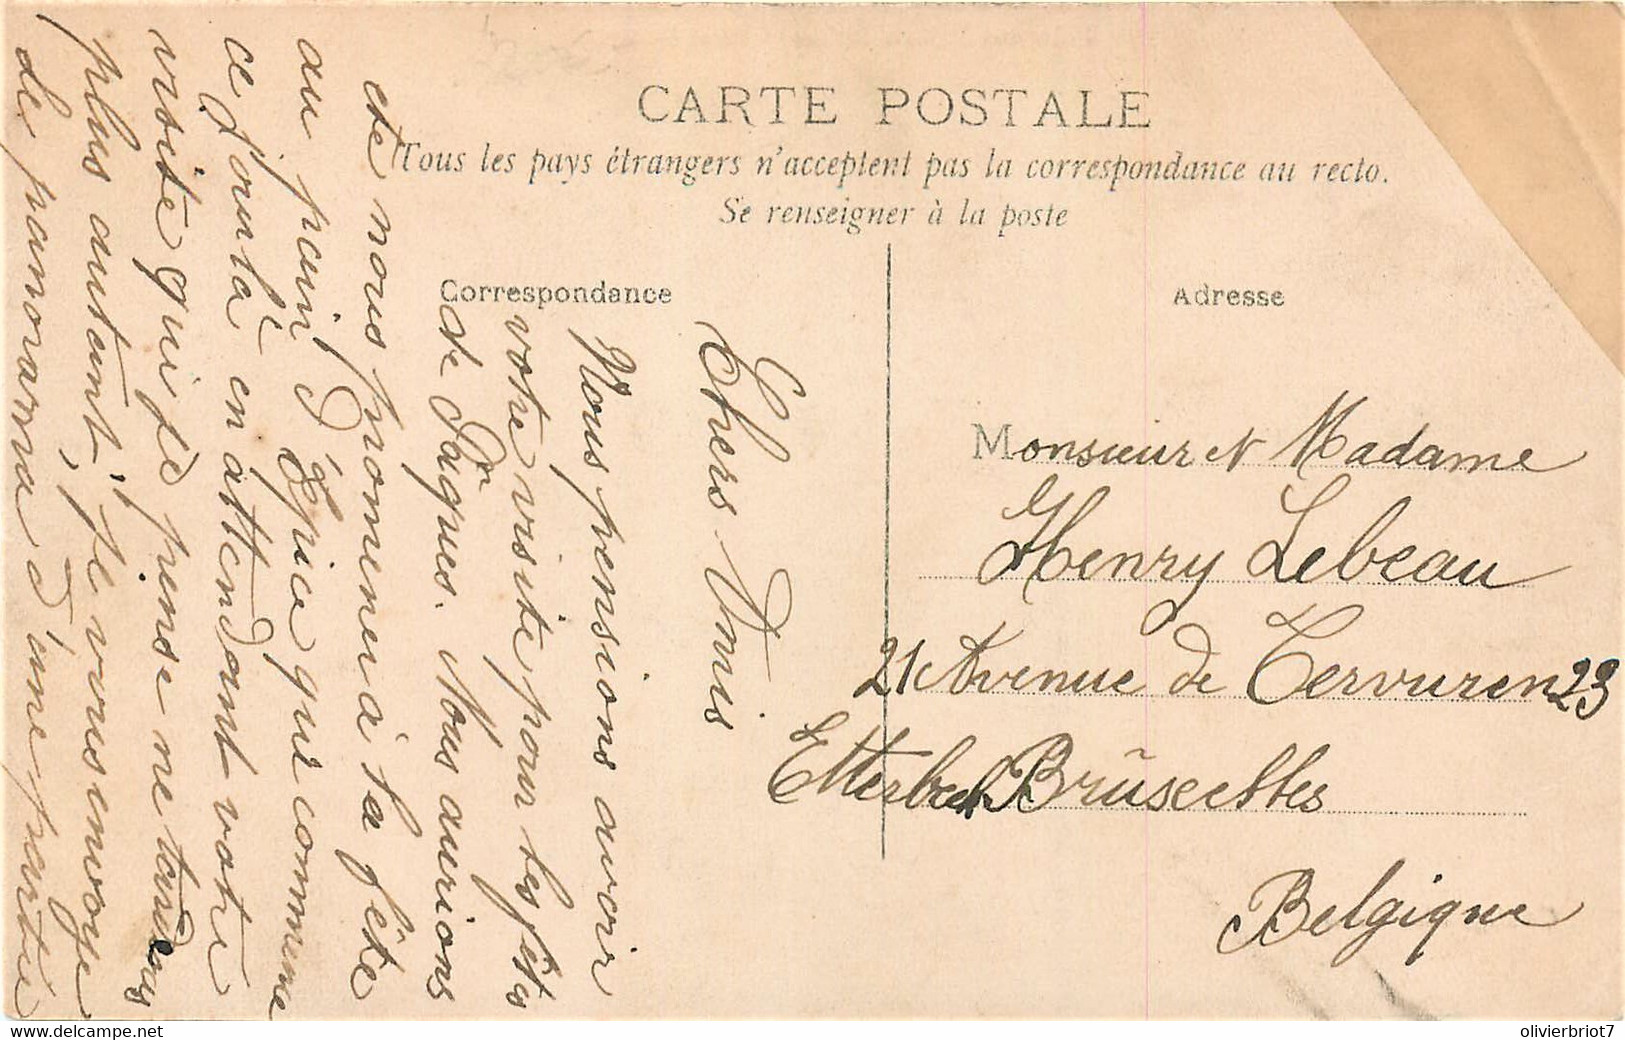 CARTE POSTALE
Tous les pays étrangers n'acceptent pas la correspondance au recto.
Se renseigner à la poste
Correspondance
Adresse
Chers Amis
Nous pensions avoir
votre visite pour les fêtes
de Pâques. Nous aurions
été nous promener à la fête
au pain d'Épice qui commence
ce jour là en attendant votre
visite qui je pense ne tardera
plus autant, je vous envoye
le panorama d'une partie
Monsieur et Madame
Henry Lebeau
21 Avenue de Tervuren 23
Etterbeek Bruxelles
Belgique
www.delcampe.net
olivierbriot7